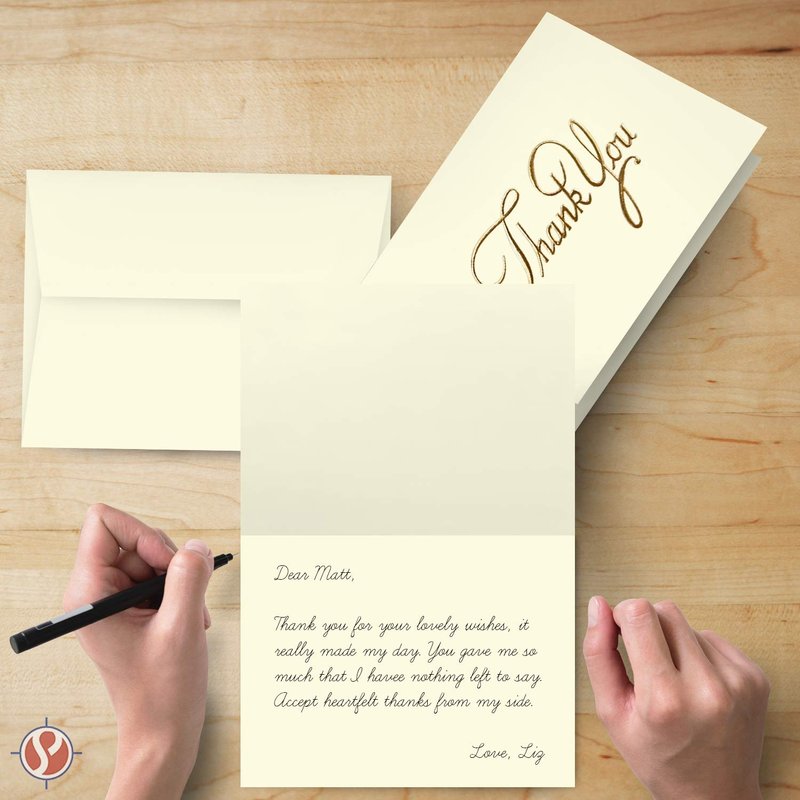 Thank You
Dear Matt,
Thank you for your lovely wishes, it
really made my day. You gave me so
much that I havee nothing left to say.
Accept heartfelt thanks from my side.
Love, Liz